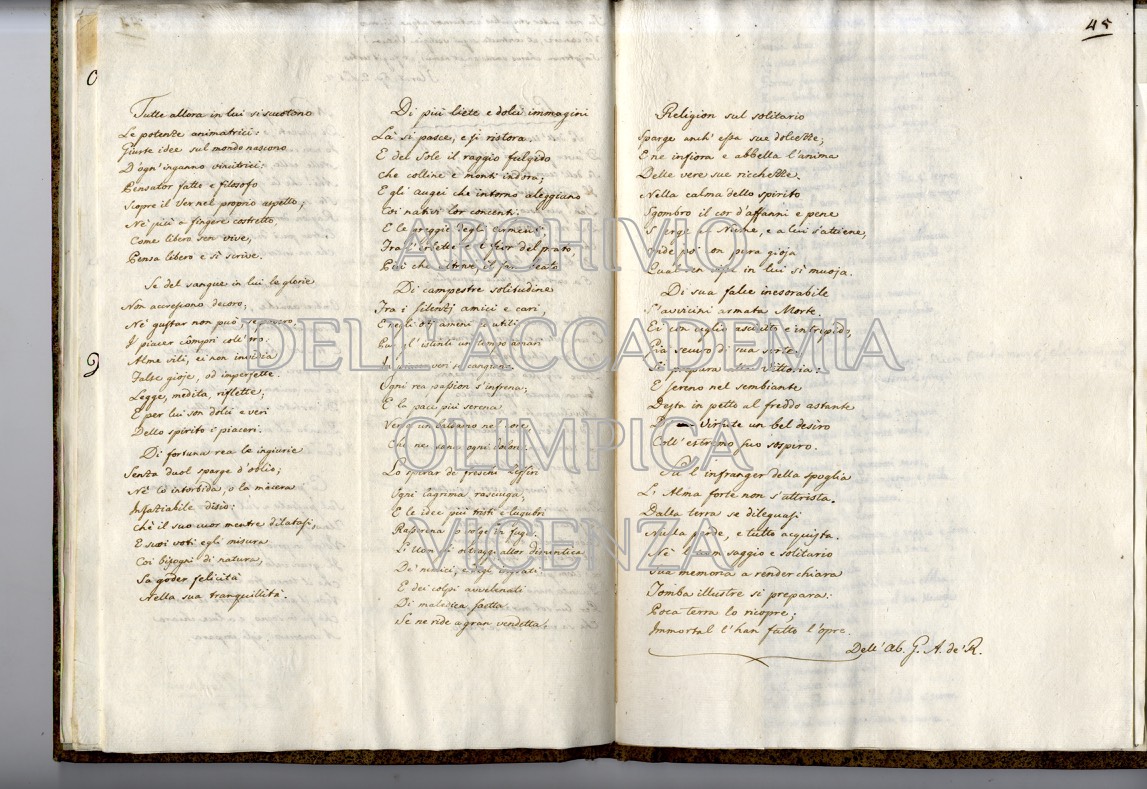 45
Tutte allora in lui si scuotono
Le potenze animatrici:
Giuste idee sul mondo nascono
D'ogn'inganno vincitrici:
Pensator fatto e filosofo
Scopre il Ver nel proprio aspetto;
Nè più a fingere costretto,
Come libero sen vive,
Pensa libero e si scrive.
Se del sangue in lui le glorie
Non accrescono decoro;
Nè gustar non può
I piacer compri coll'oro:
Alme vili, ei non invidia
False gioje, od imperfette.
Legge, medita, riflette;
E per lui son dolci e veri
Dello spirito i piaceri.
Di fortuna rea le ingiurie
Senza duol sparge d'oblio;
Nè lo intorbida, o la macera
Insaziabile disio:
Chè il suo cuor mentre dilatasi,
E suoi voti egli misura
Coi bisogni di natura,
Sa goder felicità
Nella sua tranquillità.
Di più liete e dolci immagini
Là si pasce, e si ristora.
E del Sole il raggio fulgido
Che colline e monti indora;
E gli augei che intorno aleggiano
Coi nativi lor concenti:
E le greggie degli armenti
Fra l'erbette e 'l fior del prato
Più che altrove il fan beato
Di campestre solitudine
Fra i silenzj amici e cari,
E negli ozj ameni ed utili
un tempo amari
In piacer veri si cangiano.
Ogni rea passion s'infrena;
E la pace più serena
Versa un balsamo nel core,
Che ne sana ogni dolor.
Lo spirar di freschi Zeffiri
Ogni lagrima rasciuga;
E le idee più tristi e lugubri
Rasserena e volge in fuga.
Li Uom gli oltraggi allor dimentica
De' nemici, e degli ingrati:
E dei colpi avvelenati
Di maledica saetta
Se ne ride a gran vendetta.
Religion sul solitario
Sparge anch'essa sue dolcezze;
E ne infiora e abbella l'anima
Delle vere sue ricchezze.
Nella calma dello spirito
Sgombro il cor d'affanni e pene
S'erge al Nume, e a lui s'attiene,
con pura gioja
in lui si muoja.
Di sua falce inesorabile
S'avvicini armata Morte.
Ei con ciglio asciutto e intrepido,
Già securo di sua sorte
Si prepara alla Vittoria:
E sereno nel sembiante
Desta in petto al freddo astante
Di Virtute un bel desiro
Coll'estremo suo sospiro.
l'infranger della spoglia
L'Alma forte non s'attrista.
Dalla terra se dileguasi
Nulla perde, e tutto acquista.
Nè l'uom saggio e solitario
Sua memoria a render chiara
Tomba illustre si prepara:
Poca terra lo ricopre;
Immortal l'han fatto l'opre.
Dell'Ab. G. A. de' R.
ARCHIVIO
DELL'ACCADEMIA
OLIMPICA
VICENZA